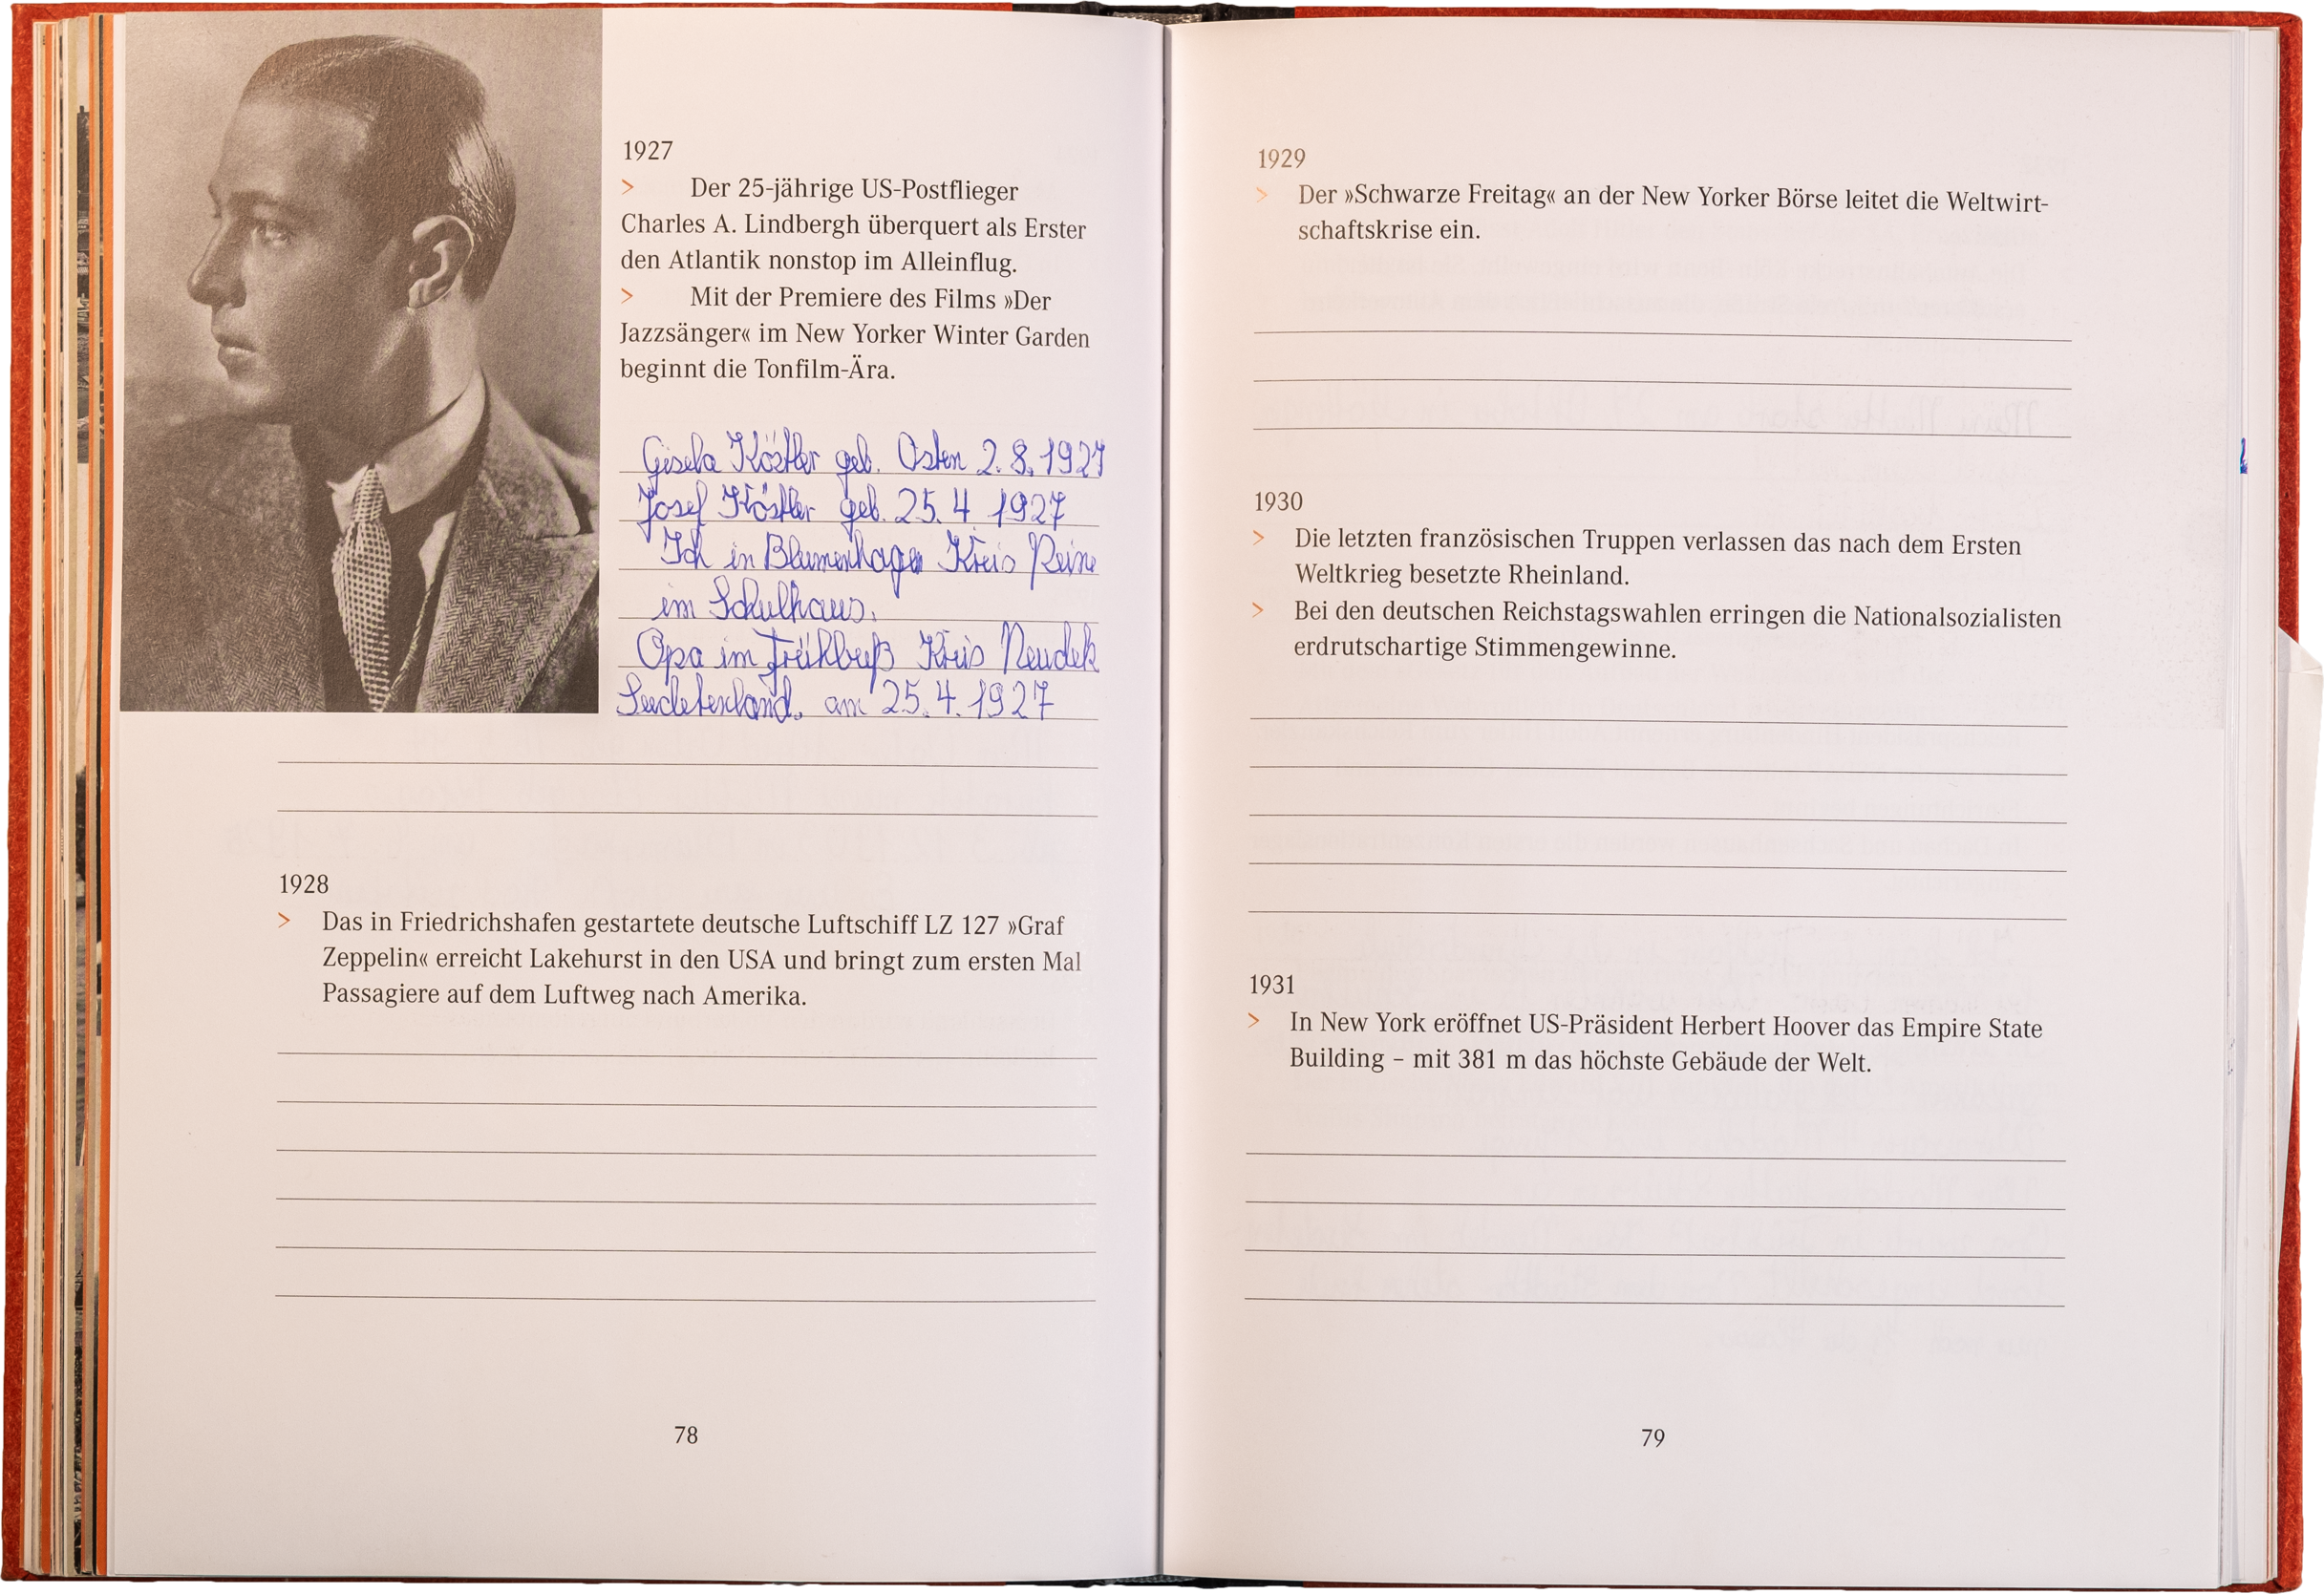 1927
> Der 25-jährige US-Postflieger
Charles A. Lindbergh überquert als Erster
den Atlantik nonstop im Alleinflug.
> Mit der Premiere des Films »Der
Jazzsänger« im New Yorker Winter Garden
beginnt die Tonfilm-Ära.
Gisela Köstler geb. Osten 2.8.1927
Josef Köstler geb. 25.4.1927
Ich in Blumenhagen Kreis Peine
im Schulhaus.
Opa im Frühbuß Kreis Neudek
Sudetenland. am 25.4.1927
1928
> Das in Friedrichshafen gestartete deutsche Luftschiff LZ 127 »Graf
Zeppelin« erreicht Lakehurst in den USA und bringt zum ersten Mal
Passagiere auf dem Luftweg nach Amerika.
78
1929
> Der »Schwarze Freitag« an der New Yorker Börse leitet die Weltwirt-
schaftskrise ein.
1930
> Die letzten französischen Truppen verlassen das nach dem Ersten
Weltkrieg besetzte Rheinland.
> Bei den deutschen Reichstagswahlen erringen die Nationalsozialisten
erdrutschartige Stimmengewinne.
1931
> In New York eröffnet US-Präsident Herbert Hoover das Empire State
Building – mit 381 m das höchste Gebäude der Welt.
79